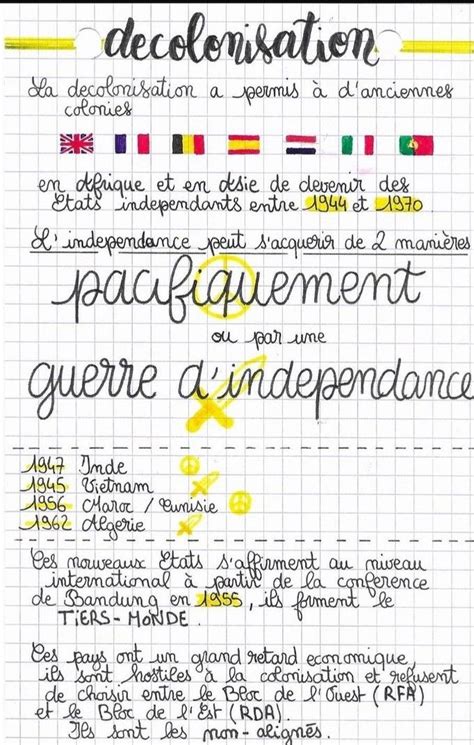 decolonisation
La decolonisation a permis à d'anciennes
colonies
en Afrique et en Asie de devenir des
Etats independants entre 1944 et 1970
L'independance peut s'acquerir de 2 manières
pacifiquement
ou par une
guerre d'independance
1947 Inde
1945 Vietnam
1956 Maroc / Tunisie
1962 Algerie
Ces nouveaux Etats s'affirment au niveau
international à partir de la conference
de Bandung en 1955, ils forment le
TIERS-MONDE.
Ces pays ont un grand retard economique,
ils sont hostiles à la colonisation et refusent
de choisir entre le Bloc de l'Ouest (RFA)
et le Bloc de l'Est (RDA).
Ils sont les non-alignés.